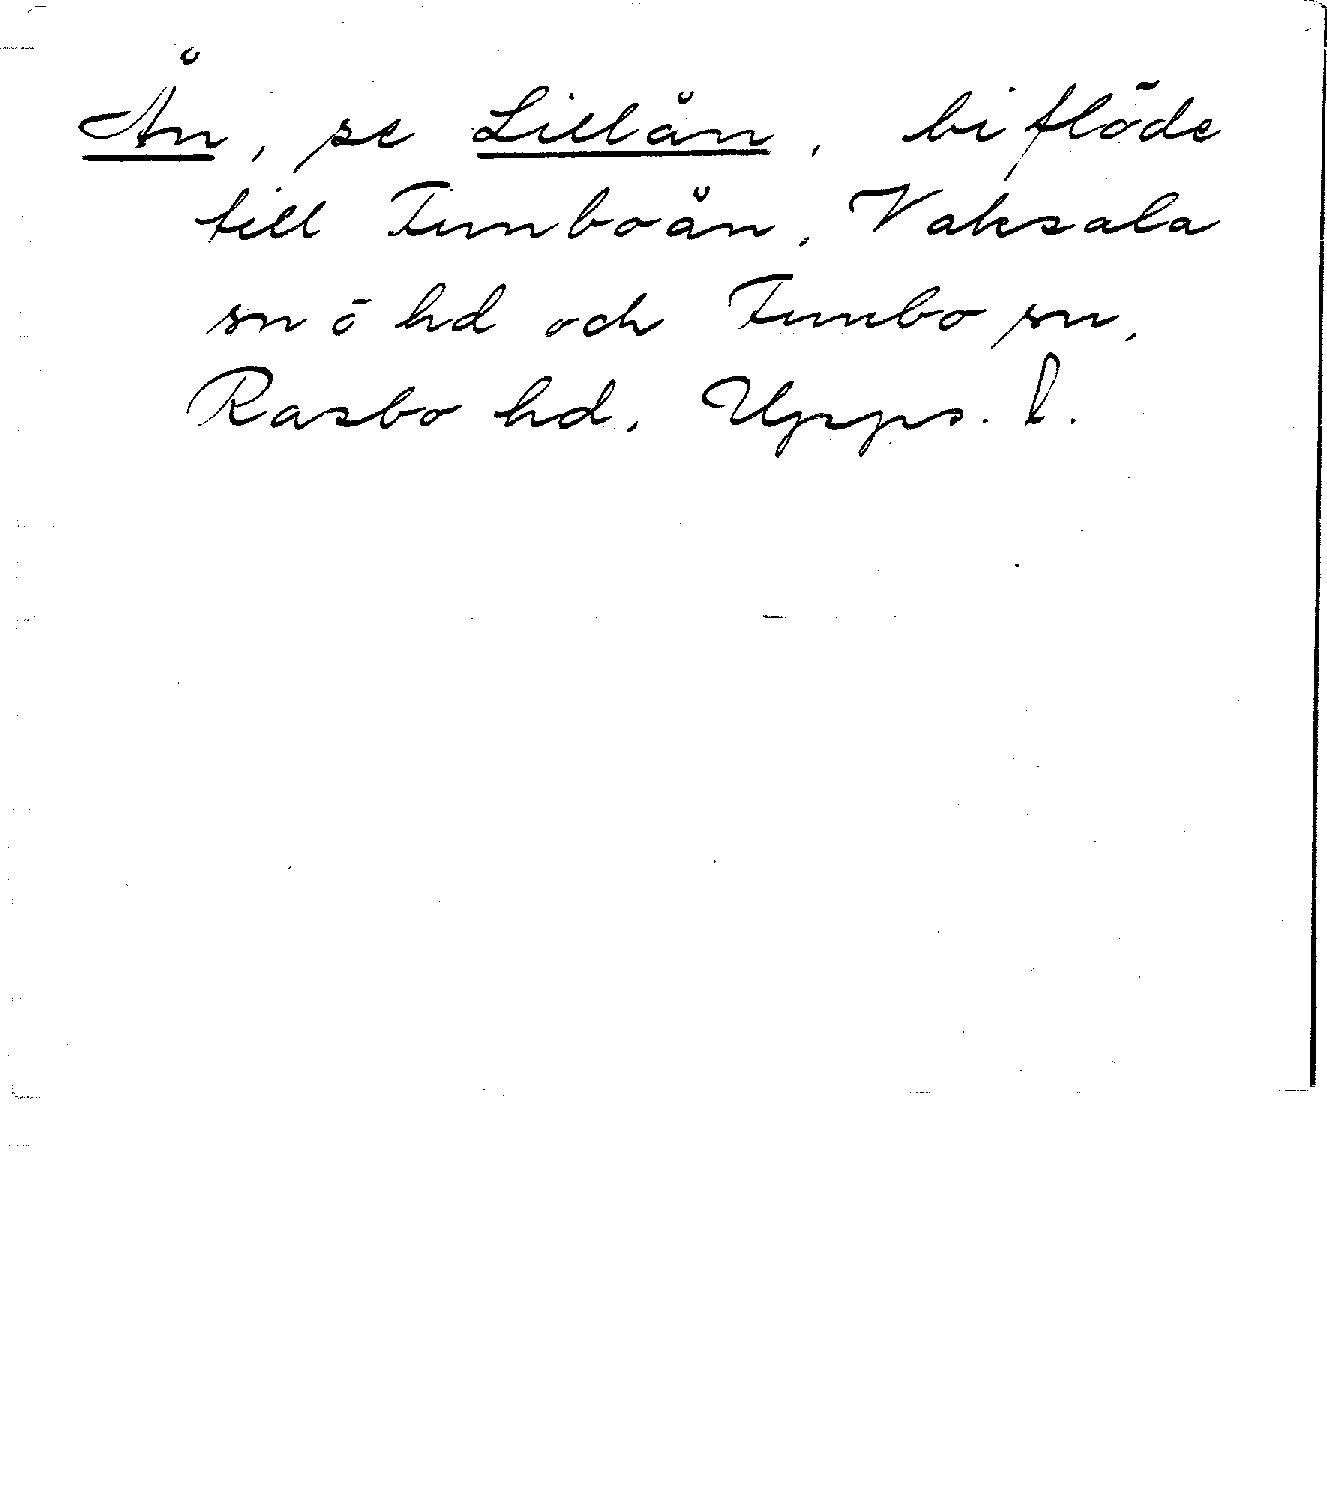 Ån, se Lillån, biflöde
till Funboån, Vaksala
sn ō hd och Funbo sn,
Rasbo hd, Upps. l.